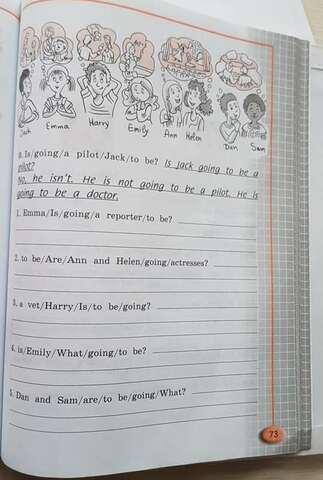 Jack Emma Harry Emily Ann Helen Dan Sam
0. Is/going/a pilot/Jack/to be? Is Jack going to be a
pilot?
No, he isn't. He is not going to be a pilot. He is
going to be a doctor.
1. Emma/Is/going/a reporter/to be?
2. to be/Are/Ann and Helen/going/actresses?
3. a vet/Harry/Is/to be/going?
4. is/Emily/What/going/to be?
5. Dan and Sam/are/to be/going/What?
73